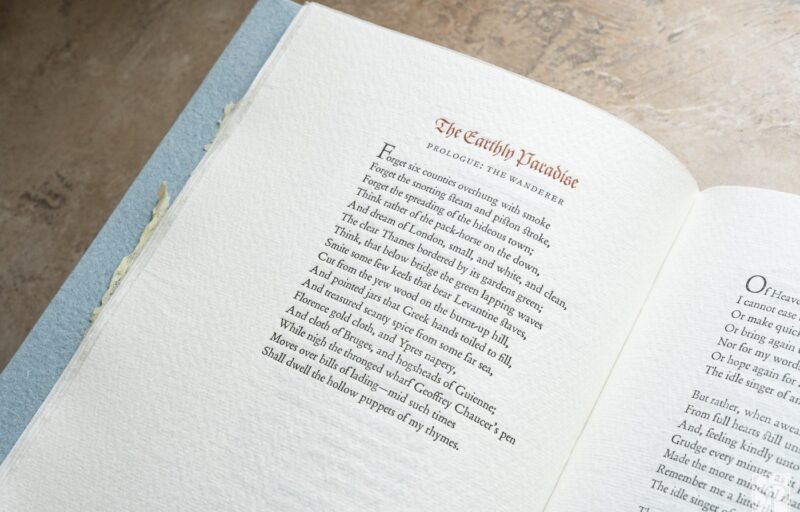 The Earthly Paradise
PROLOGUE: THE WANDERER
Forget six counties overhung with smoke
Forget the snorting steam and piston stroke,
Forget the spreading of the hideous town;
Think rather of the pack-horse on the down,
And dream of London, small, and white, and clean,
The clear Thames bordered by its gardens green;
Think, that below bridge the green lapping waves
Smite some few keels that bear Levantine staves,
Cut from the yew wood on the burnt-up hill,
And pointed jars that Greek hands toiled to fill,
And treasured scanty spice from some far sea,
Florence gold cloth, and Ypres napery,
And cloth of Bruges, and hogsheads of Guienne;
While nigh the thronged wharf Geoffrey Chaucer's pen
Moves over bills of lading—mid such times
Shall dwell the hollow puppets of my rhymes.
Of
I cannot ease
Or make quick
Or bring again
Nor for my word
Or hope again for
The idle singer of
But rather, when
From full hearts still
And, feeling kindly
Grudge every minute
Made the more
Remember me a
The idle singer of